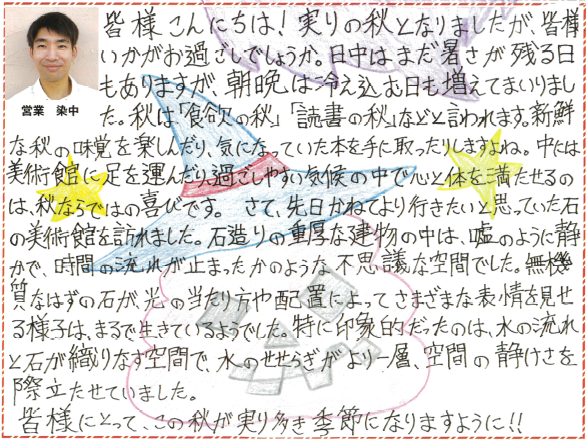 皆様こんにちは！実りの秋となりましたが、皆様
いかがお過ごしでしょうか。日中はまだ暑さが残る日
もありますが、朝晩は冷え込む日も増えてまいりまし
営業　染中
た。秋は「食欲の秋」「読書の秋」などと言われます。新鮮
な秋の味覚を楽しんだり、気になっていた本を手に取ったりしますよね。中には
美術館に足を運んだり、過ごしやすい気候の中で心と体を満たせるの
は、秋ならではの喜びです。　さて、先日かねてより行きたいと思っていた石
の美術館を訪れました。石造りの重厚な建物の中は、嘘のように静
かで、時間の流れが止まったかのような不思議な空間でした。無機
質なはずの石が光の当たり方や配置によってさまざまな表情を見せ
る様子は、まるで生きているようでした。特に印象的だったのは、水の流れ
と石が織りなす空間で、水のせせらぎがより一層、空間の静けさを
際立たせていました。
皆様にとって、この秋が実り多き季節になりますように!!